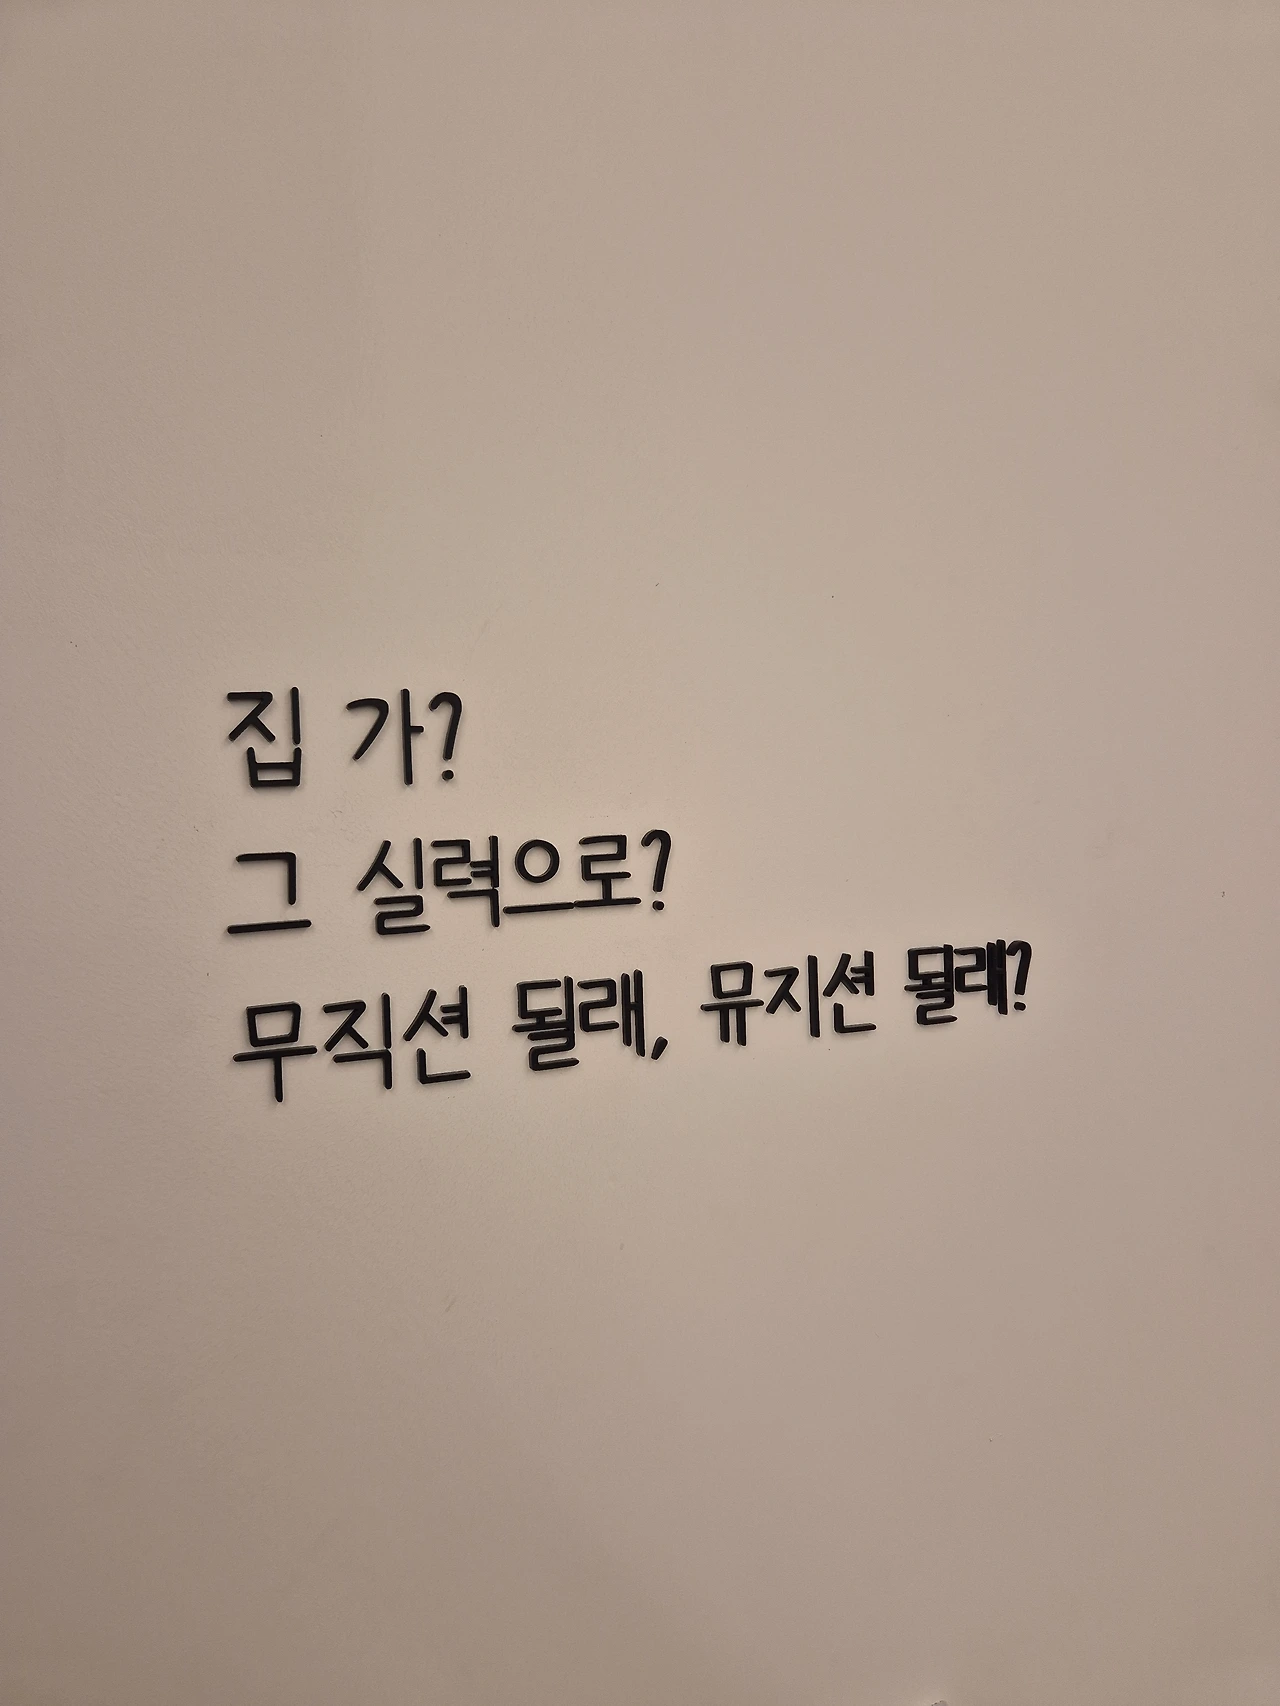 집 가?
그 실력으로?
무직션 될래, 뮤지션 될래?